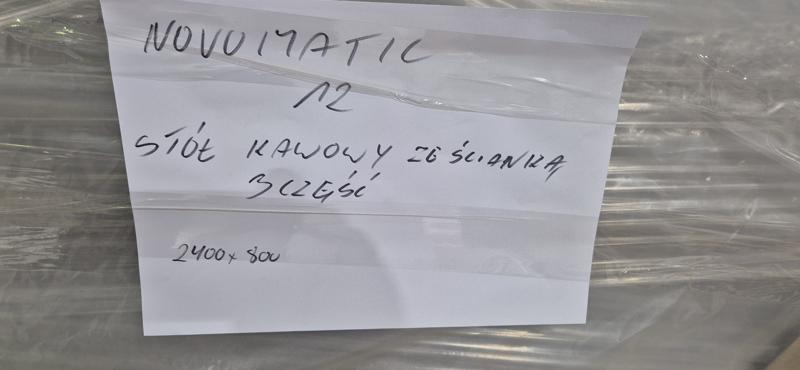 NOVOMATIC
12
STÓŁ KAWOWY ZE ŚCIANKĄ
3 CZĘŚĆ
2400x800